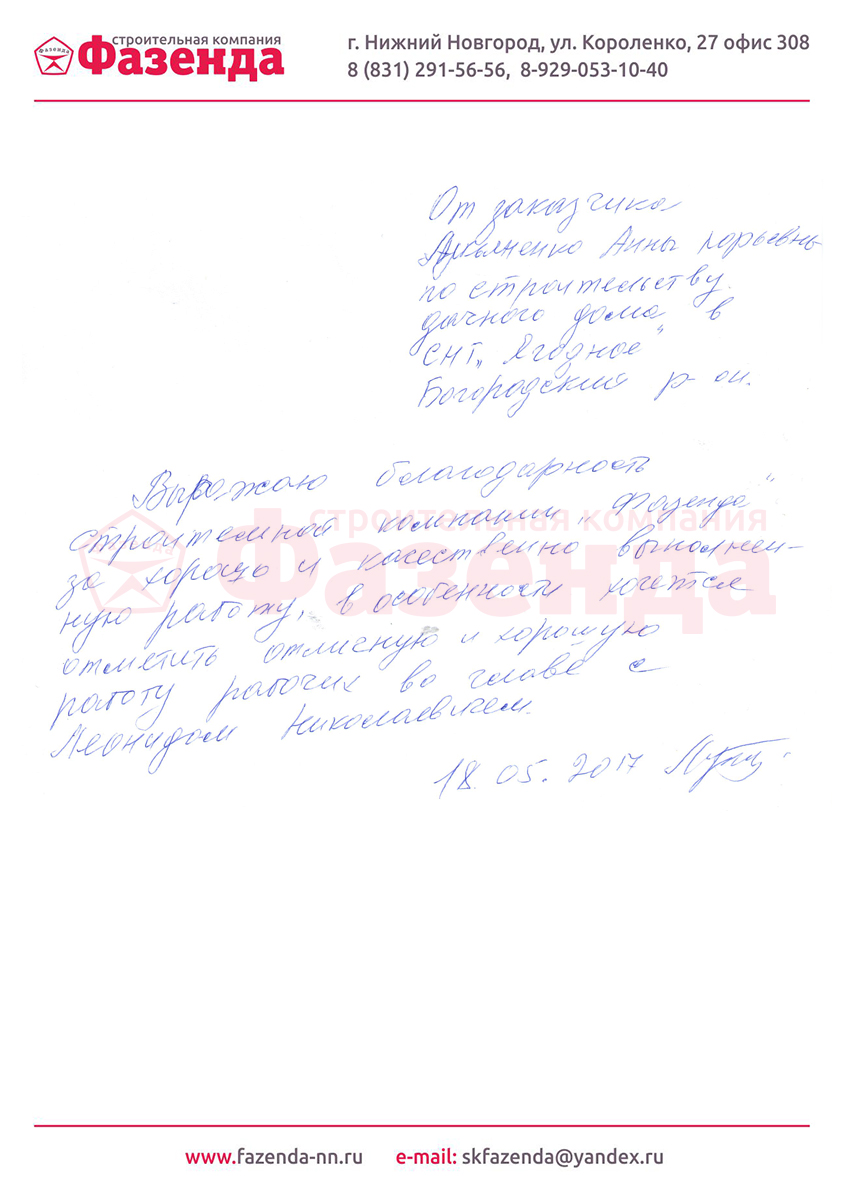 строительная компания
Фазенда
Фазенда
г. Нижний Новгород, ул. Короленко, 27 офис 308
8 (831) 291-56-56, 8-929-053-10-40
От заказчика
Анны
по строительству
дачного дома в
СНТ „Ягодное"
Богородский р-он.
строительная компания
Фазенда
Выражаю благодарность
строительной компании „Фазенда"
за хорошо и качественно выполнен-
ную работу, в особенности хочется
отметить отличную и хорошую
работу рабочих во главе с
Леонидом Николаевичем.
18.05.2017
www.fazenda-nn.ru e-mail: skfazenda@yandex.ru